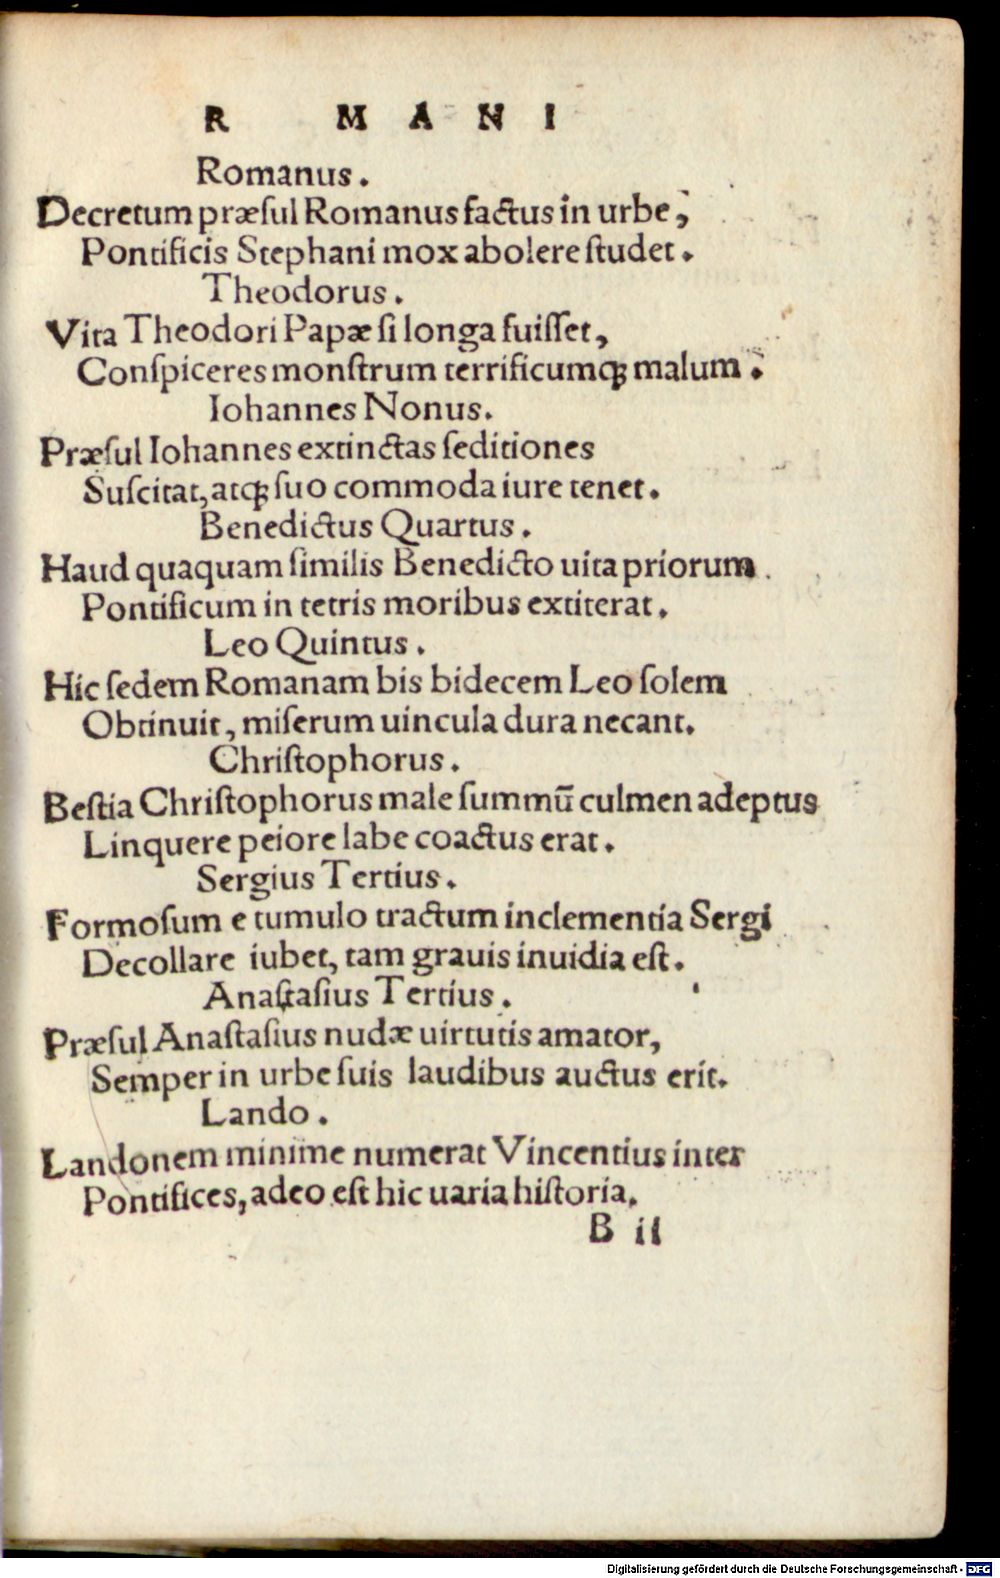 R MANI
Romanus.
Decretum præſul Romanus factus in urbe,
Pontificis Stephani mox abolere ſtudet.
Theodorus.
Vita Theodori Papæ ſi longa fuiſſet,
Conſpiceres monſtrum terrificumqꝫ malum.
Iohannes Nonus.
Præſul Iohannes extinctas ſeditiones
Suſcitat, atqꝫ ſuo commoda iure tenet.
Benedictus Quartus.
Haud quaquam ſimilis Benedicto uita priorum
Pontificum in tetris moribus extiterat.
Leo Quintus.
Hic ſedem Romanam bis bidecem Leo ſolem
Obtinuit, miſerum uincula dura necant.
Chriſtophorus.
Beſtia Chriſtophorus male ſummū culmen adeptus
Linquere peiore labe coactus erat.
Sergius Tertius.
Formoſum e tumulo tractum inclementia Sergi
Decollare iubet, tam grauis inuidia eſt.
Anaſtaſius Tertius.
Præſul Anaſtaſius nudæ uirtutis amator,
Semper in urbe ſuis laudibus auctus erit.
Lando.
Landonem minime numerat Vincentius inter
Pontifices, adeo eſt hic uaria hiſtoria.
B ii
Digitalisierung gefördert durch die Deutsche Forschungsgemeinschaft - DFG